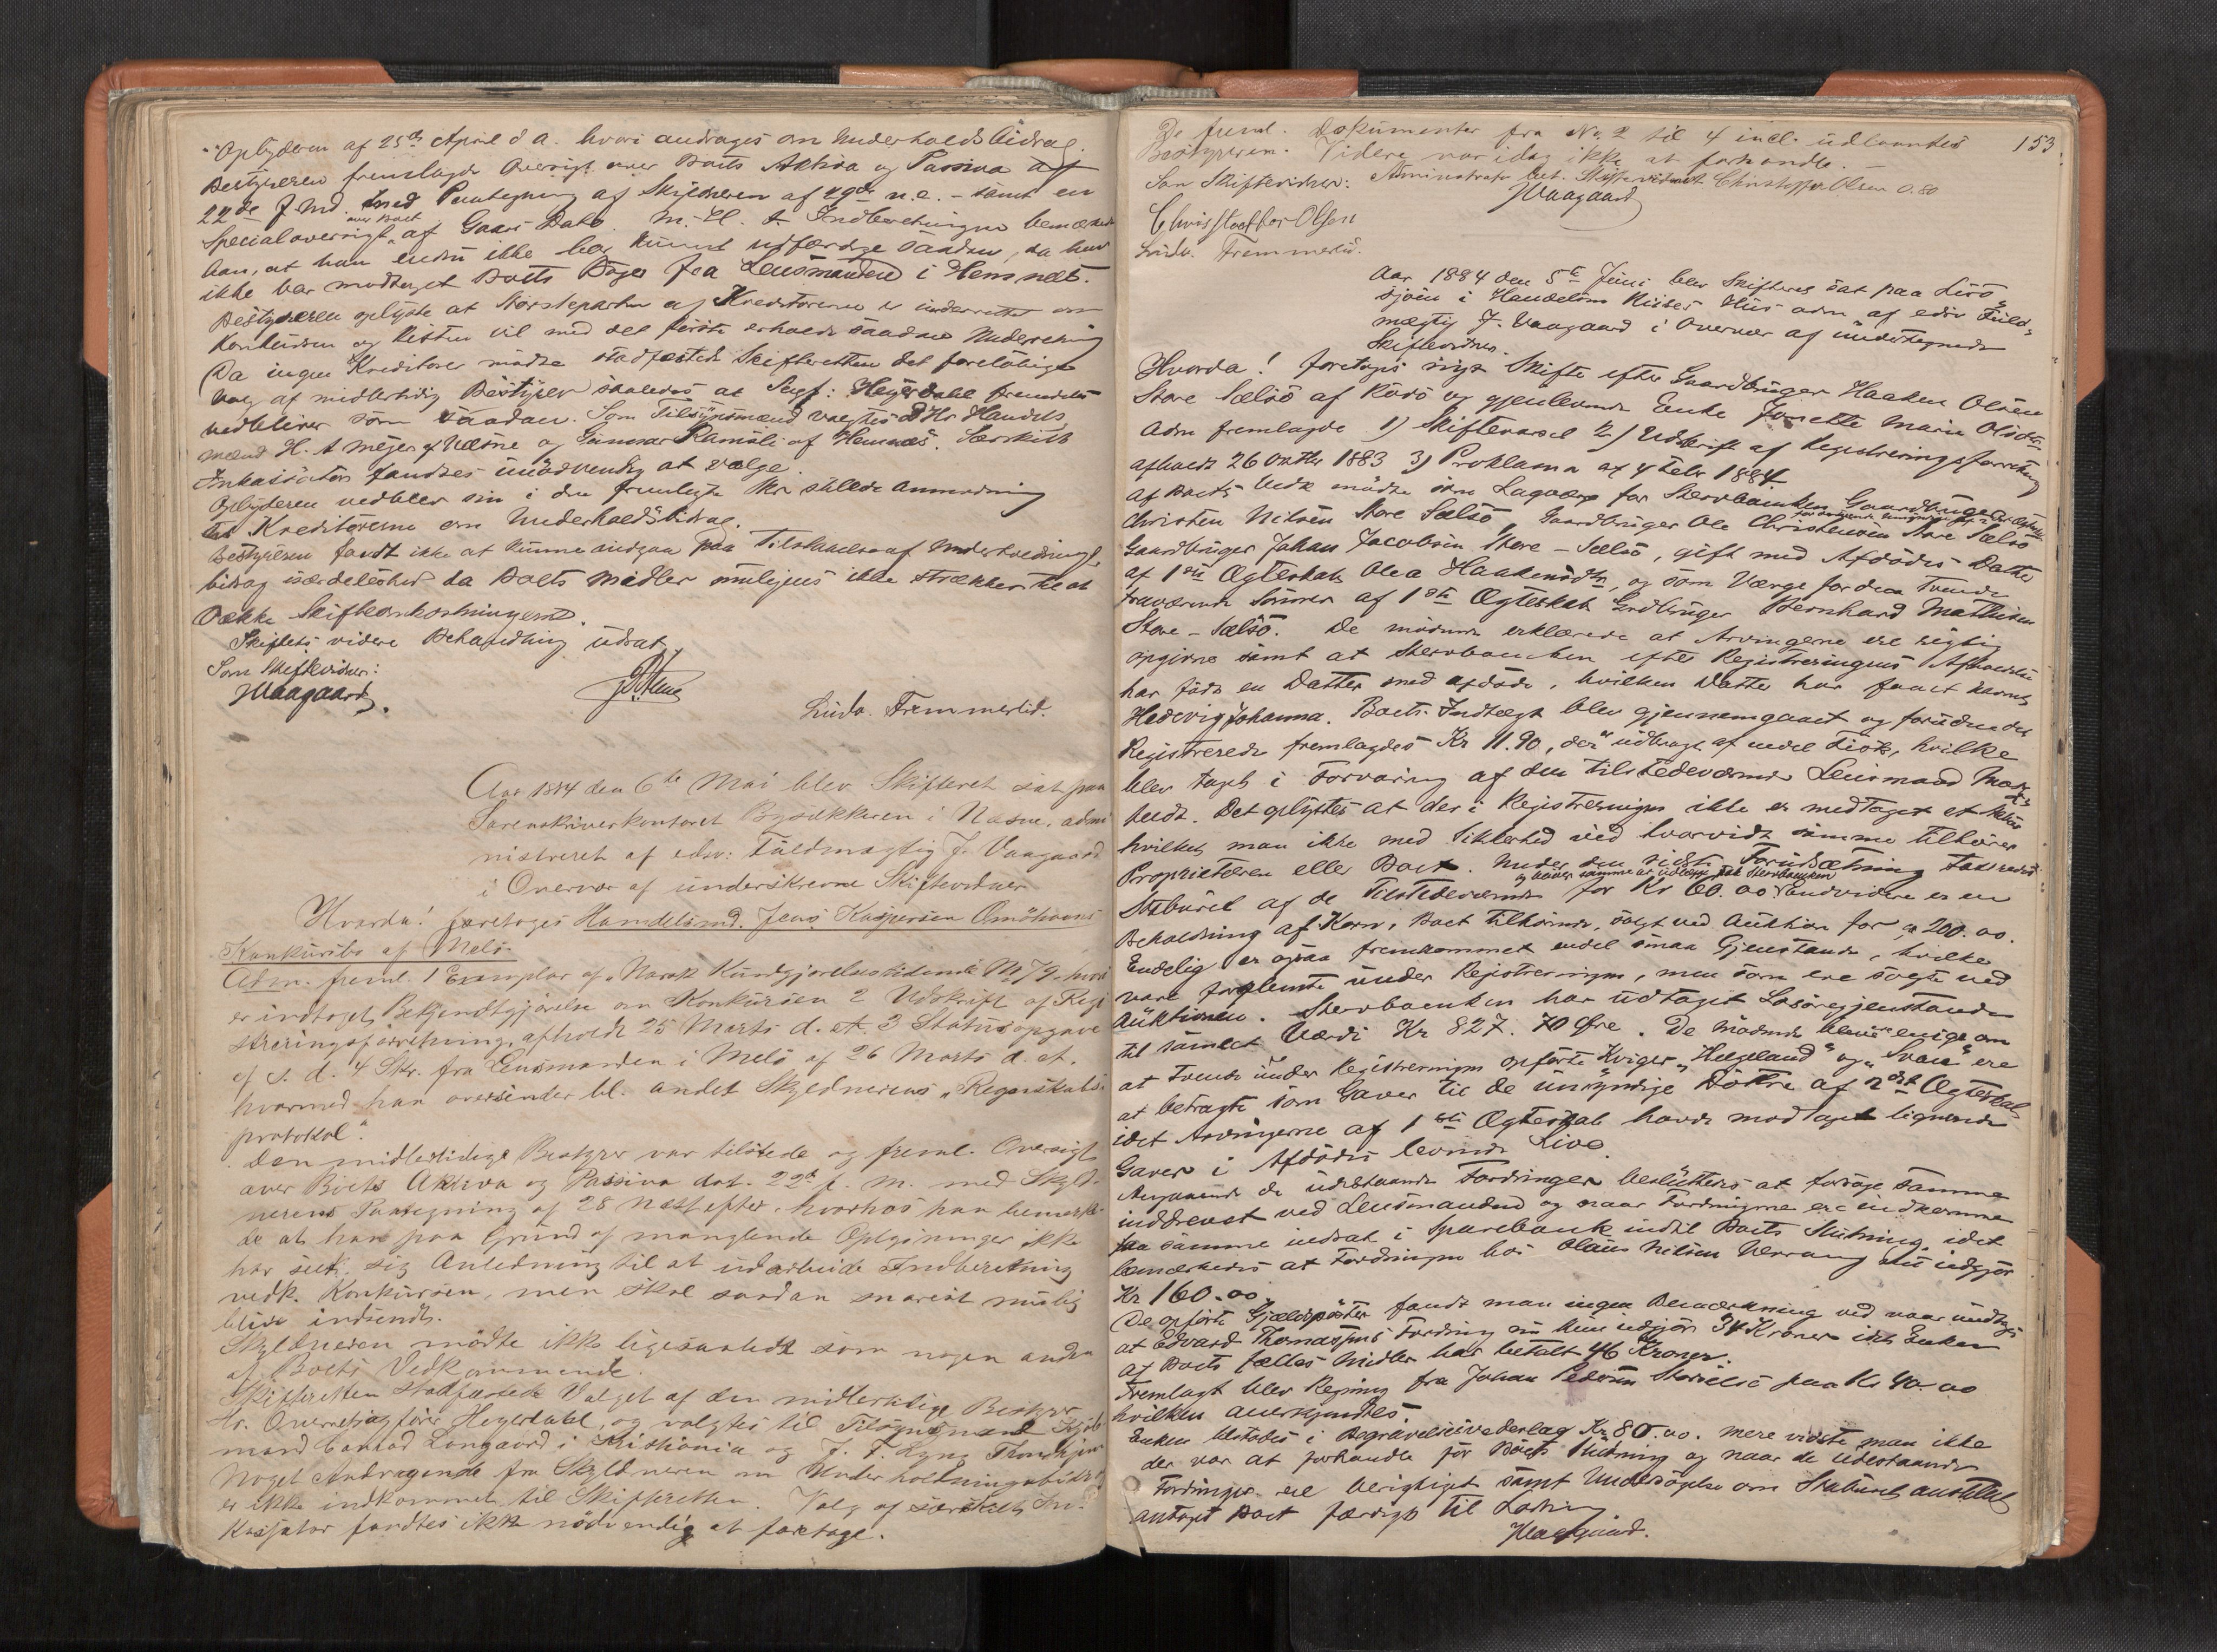 Opbyderen af 25de April d A. hvori andrages om Underholdsbidrag.
Bestyreren fremlagde Oversigt over Boets Aktiva og Passiva af
22de f. Md. med Paategning af Skyldneren af 29de n. e. – samt en
Specialoversigt over Boet af Gaars Dato. M. H. t. Indberetningen bemærkede
han, at han endnu ikke har kunnet udfærdige saadan, da han
ikke har modtaget Boets Bøger fra Lensmanden i Hemnæs.
Bestyreren oplyste at Størsteparten af Kreditorerne er underrettet om
Konkursen og Resten vil med det første erholde saadan Underretning
Da ingen Kreditorer mødte stadfæstede Skifteretten det foreløbige
Valg af midlertidig Bestyrer saaledes at Sagf: Heyerdahl fremdeles
vedbliver som saadan. Som Tilsynsmænd valgtes Hr Handels
mænd H. A Meyer af Næsne og Gunnar Ramsli af Hemnæs. Særskilt
Inkassator fandtes unødvendig at vælge.
Opbyderen vedblev sin i den fremlagte Skr stillede Anmodning
til Kreditorerne om Underholdsbidrag.
Bestyreren fandt ikke at kunne indgaa paa Tilstaaelse af Underholdnings
bidrag særdeleshed da Boets Midler muligens ikke strækker til at
dække Skifteomkostningerne.
Skiftets videre Behandling udsat.
Som Skiftevidner:
JWaagaard.
Ludv. Fremmerlid.
Aar 1884 den 6te Mai blev Skifteret sat paa
Sorenskriverkontoret Bysækkeren i Næsne, admi
nistreret af edsv: Fuldmægtig J. Vaagaard
i Overvær af underskrevne Skiftevidner
Hvorda! foretoges Handelsmd. Jens Kaspersen Omøhavns
Konkursbo af Melø.
Adm. freml. 1 Exemplar af „Norsk Kundgjørelsestidende No 79 hvori
er indtaget Bekjendtgjørelse om Konkursen 2 Udskrift af Regi
streringsforretning, afholdt 25 Marts d. A. 3 Statusopgave
af s. d. 4 Skr. fra Lensmanden i Melø af 26 Marts d. A.
hvormed han oversender bl. andet Skyldnerens „Regnskabs
protokol".
Den midlertidige Bestyrer var tilstede og freml. Oversigt
over Boets Aktiva og Passiva dat. 22de f. M. med Skyld-
nerens Paategning af 28 næstefter, hvorhos han bemærke-
de at han paa Grund af manglende Oplysninger ikke
har seet sig Anledning til at udarbeide Indberetning
vedk. Konkursen, men skal saadan snarest mulig
blive indsendt.
Skyldneren mødte ikke ligesaalidt som nogen anden
af Boets Vedkommende.
Skifteretten stadfæstede Valget af den midlertidige Bestyrer
Hr. Overretssagfører Heyerdahl, og valgtes til Tilsynsmænd Kjøb
mænd Conrad Langaard i Kristiania og J. F. Lysø Throndhjem
Noget Andragende fra Skyldneren om Underholdningsbidrag
er ikke indkommet til Skifteretten. Valg af særskilt In-
kassator fandtes ikke nødvendig at foretage.
153
De freml. Dokumenter fra No 2 til 4 incl. udlaantes
Bestyreren. Videre var idag ikke at forhandle.
Som Skiftevidner: Administrator bet. Skiftevidnet Christoffer Olsen 0.80
JWaagaard
Christoffer Olsen
Ludv. Fremmerlid.
Aar 1884 den 5te Juni blev Skifteret sat paa
sjøen i Handelsm Hus adm af edsv Fuld-
mægtig J. Vaagaard i Overvær af undertegnede
Skiftevidner.
Hvorda! foretoges Skifte efter Gaardbruger Haaken Olsen
Store Sælsø af Rødø og gjenlevende Enke Jonette Marie Olsdtr
Adm fremlagde 1) Skiftevarsel 2) Udskrift af Registreringsforretning
afholdt 26 Oktbr 1883 3) Proklama af 4 Febr 1884.
Af Boets Vedk mødte som Lagværge for Stervboenken Gaardbruger
Christen Nilsen Store Sælsø, Gaardbruger Ole Christensen Store Sælsø
Gaardbruger Johan Jacobsen Store-Sælsø, gift med Afdødes Datter
af 1ste Ægteskab Olea Haakensdtr, og som Værge for den tvende
fraværende Sønner af 1ste Ægteskab Grdbruger Bernhard Mathisen
Store-Sælsø. De mødende erklærede at Arvingerne ere rigtig
opgivne samt at Stervboenken efter Registreringens Afholdelse
har født en Datter med afdøde, hvilken Datter har faaet Navnet
Hedevig Johanna. Boets Indtægt blev gjennemgaaet og foruden det
Registrerede fremlagdes Kr 11.90, der udbragt af endel, hvilke
blev taget i Forvaring af den tilstedeværende Lensmand
. Det oplystes at der i Registreringen ikke er medtaget et
hvilket man ikke med Sikkerhed ved hvorvidt samme tilhører
Proprietæren eller Boet. Under den sidste Forudsætning taxeredes
Staburet af de Tilstedeværende for Kr 60.00. Endvidere er en
Beholdning af Korn, Boet tilhørende, solgt ved Auktion for 200.00.
Endelig er ogsaa fremkommet endel smaa Gjenstande, hvilke
vare forglemte under Registreringen, men som ere solgte ved
Auktionen. Stervboenken har udtaget Løsøregjenstande
til samlet Værdi Kr 827.70 Øre. De Mødende bleve enige om
at tvende under Registreringen opførte Kviger „Helgeland" og „Svane" ere
at betragte som Gaver til de umyndige Døttre af 2det Ægteskab
idet Arvingerne af 1ste Ægteskab havde modtaget lignende
Gaver i Afdødes levende Live.
Angaaende de udestaaende Fordringer besluttedes at forsøge samme
inddrevet ved Lensmanden og naar Fordringerne ere indkomne
faa samme indsat i Sparebank indtil Boets Slutning, idet
bemærkedes at Fordringen hos Olaus Nilsen Værrang nu udgjør
Kr 160.00.
De opførte Gjældsposter fandt man ingen Bemærkning ved naar undtages
at Edvard Thomassens Fordring nu kun udgjør 34 Kroner idet Enken
af Boets fælles Midler har betalt 46 Kroner.
Fremlagt blev Regning fra Johan Pedersen Storselsø paa Kr 40.00
hvilken anerkjendtes.
Enken tilstodes i Begravelsesvederlag Kr 80.00. Mere vidste man ikke
der var at forhandle før Boets Slutning og naar de udestaaende
Fordringer ere berigtiget samt Undersøgelse om Staburet anstillet
antages Boet færdigt til Lodning
JWaagaard.